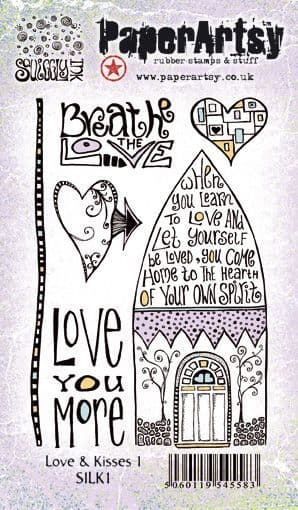 Squiggly INK
PaperArtsy
rubber stamps & stuff
www.paperartsy.co.uk
Breathe
THE
LOVE
When
you Learn
To Love And
Let Yourself
be Loved, you come
Home to The Hearth
OF your own Spirit
Love
you
More
Love & Kisses 1
SILK1
5060119 545583